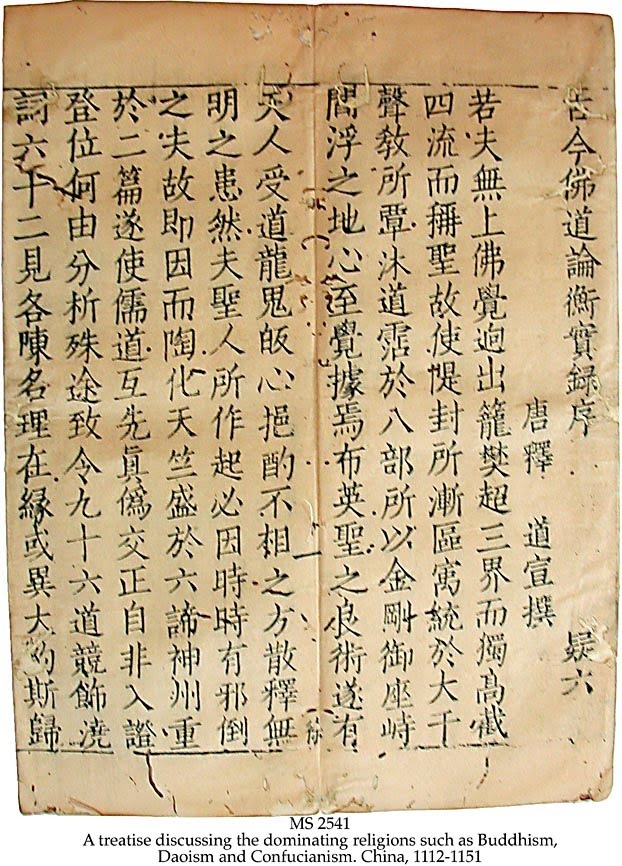 古今佛道論衡實録序 疑六
唐釋 道宣撰
若夫無上佛覺逈出籠樊超三界而獨髙截
四流而稱聖故使惿封所漸區寓統於大千
聲教所覃沐道霑於八部所以金剛御座峙
閻浮之地心至覺據焉布英聖之良術遂有
天人受道龍鬼皈心挹酌不相之方散釋無
明之患然夫聖人所作起必因時時有邪倒
之夫故即因而陶化天竺盛於六諦神州重
於二篇遂使儒道互先眞僞交正自非入證
登位何由分析殊途致令九十六道競飾澆
詞六十二見各陳名理在縁或異大約斯歸
MS 2541
A treatise discussing the dominating religions such as Buddhism,
Daoism and Confucianism. China, 1112-1151